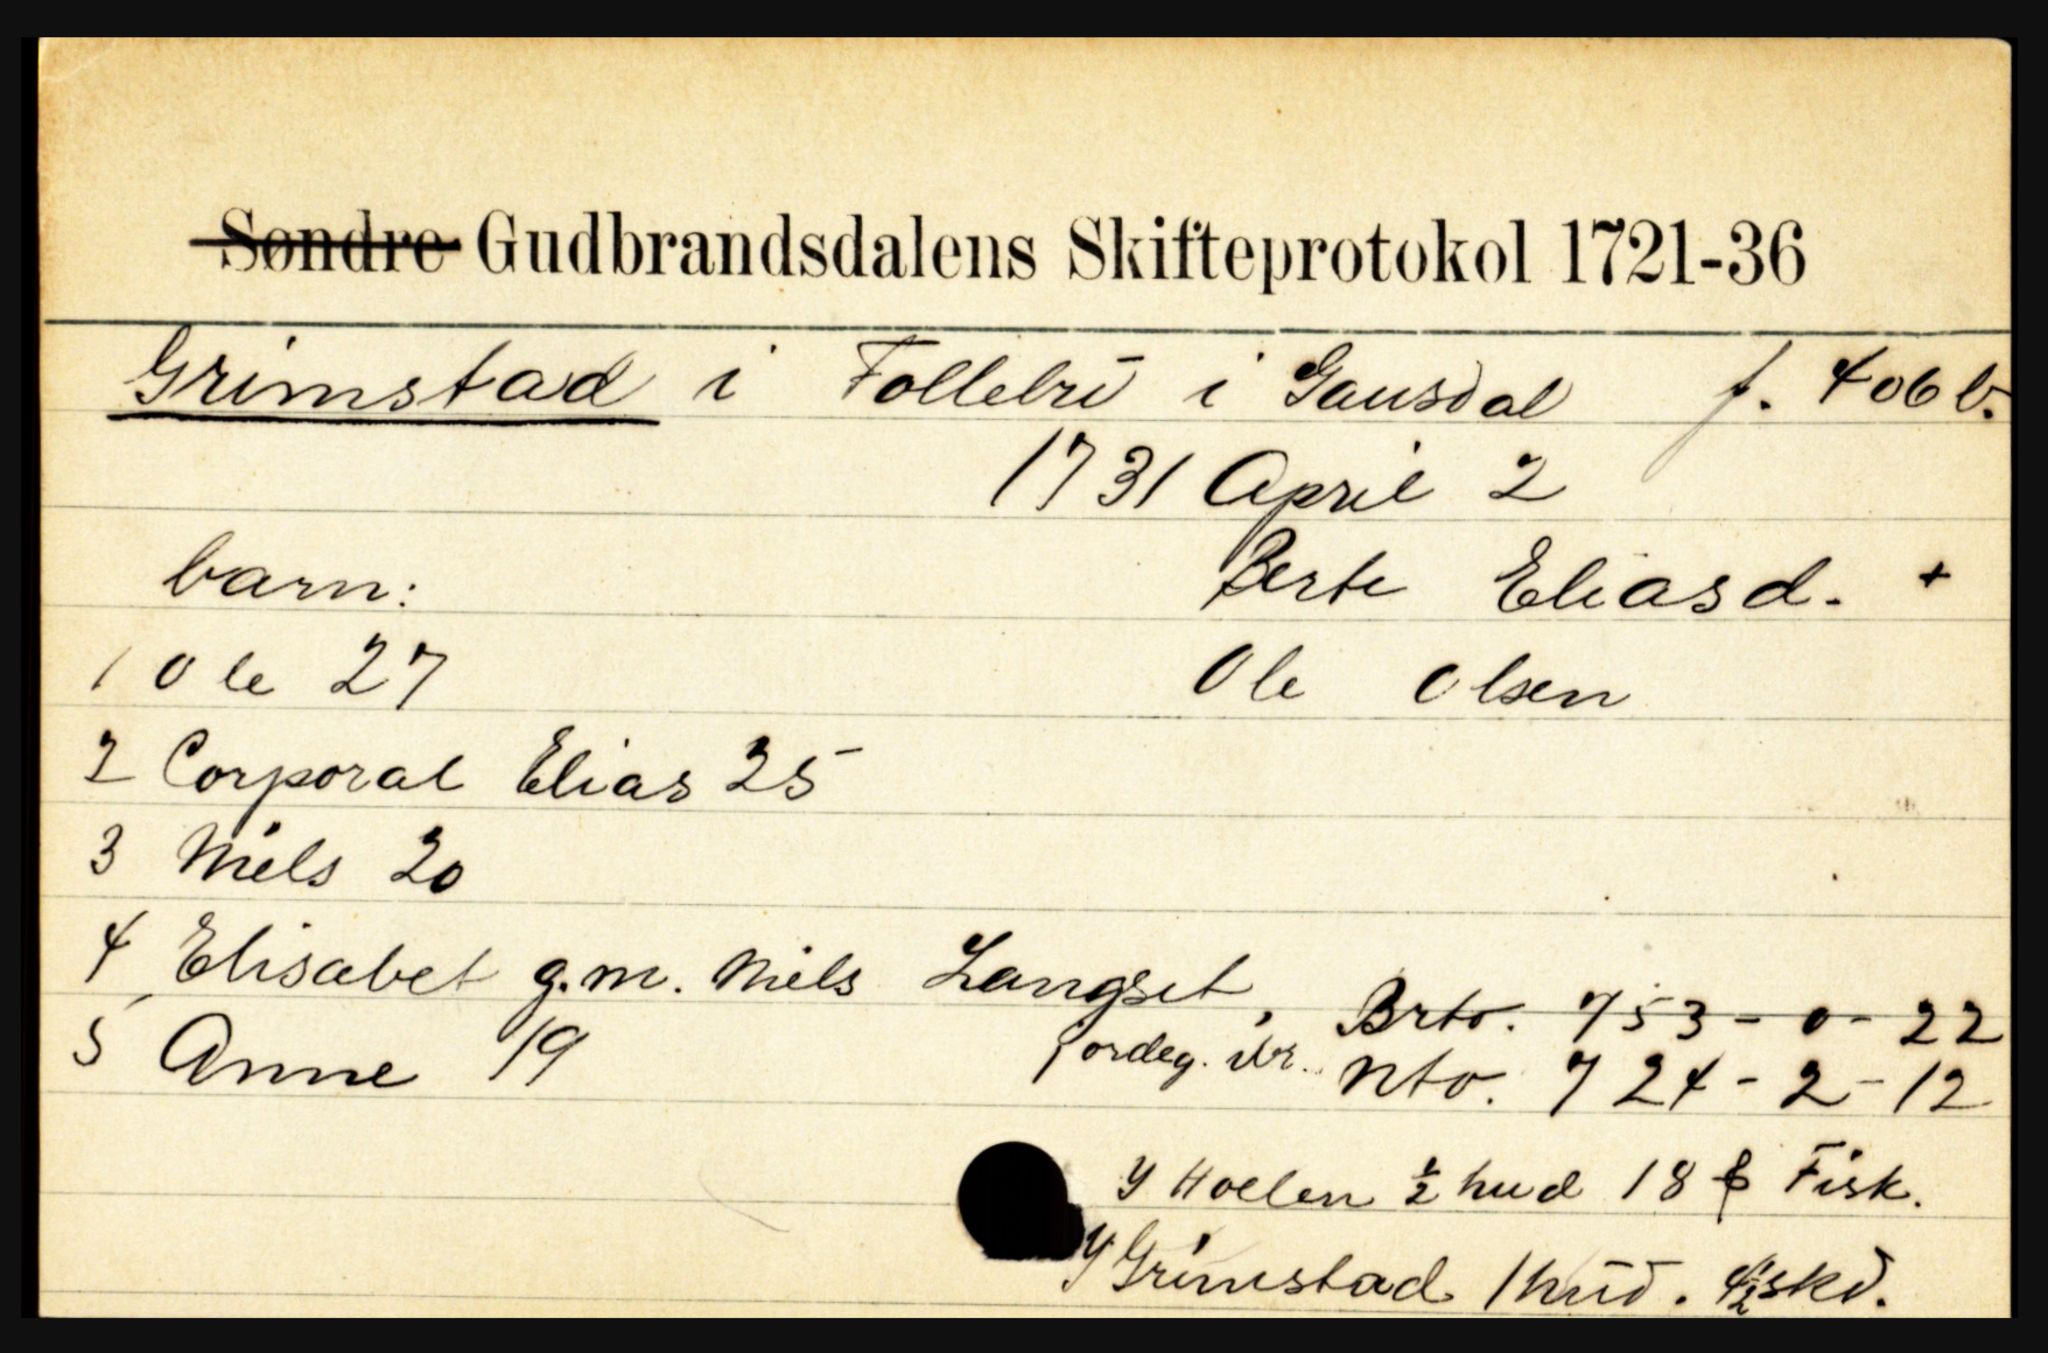 Søndre Gudbrandsdalens Skifteprotokol 1721-36
Grimstad i Follebu i Gausdal f. 406 b.
1731 April 2
barn: Berte Eliasd. +
1 Ole 27 Ole Olsen
2 Corporal Elias 25
3 Niels 20
4 Elisabet g.m. Niels Langset, Brto. 753-0-22
5 Anne 19 jordeg. Nto. 724-2-12
Y Hoelen ½ hud 18 Fisk.
Y Grimstad 1 hud. 4½ skd.